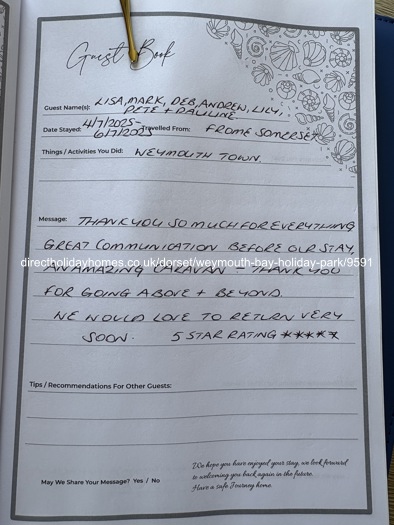 Guest Book
Guest Name(s): LISA, MARK, DEB, ANDREW, LILY,
PETE + PAULINE
Date Stayed: 4/7/2025-
6/7/2025 Travelled From: FROME SOMERSET
Things / Activities You Did: WEYMOUTH TOWN.
Message: THANK YOU SO MUCH FOR EVERYTHING
GREAT COMMUNICATION BEFORE OUR STAY,
directholidayhomes.co.uk/dorset/weymouth-bay-holiday-park/9591
AN AMAZING CARAVAN – THANK YOU
FOR GOING ABOVE + BEYOND.
WE WOULD LOVE TO RETURN VERY
SOON. 5 STAR RATING *****
Tips / Recommendations For Other Guests:
May We Share Your Message? Yes / No
We hope you have enjoyed your stay, we look forward
to welcoming you back again in the future.
Have a safe Journey home.